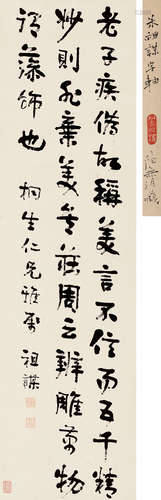 朱祖謀字軸
老子疾偽故稱美言不信而五千精
妙則非棄美矣莊周云辨雕萬物
謂藻飾也
桐生仁兄雅屬 祖謀